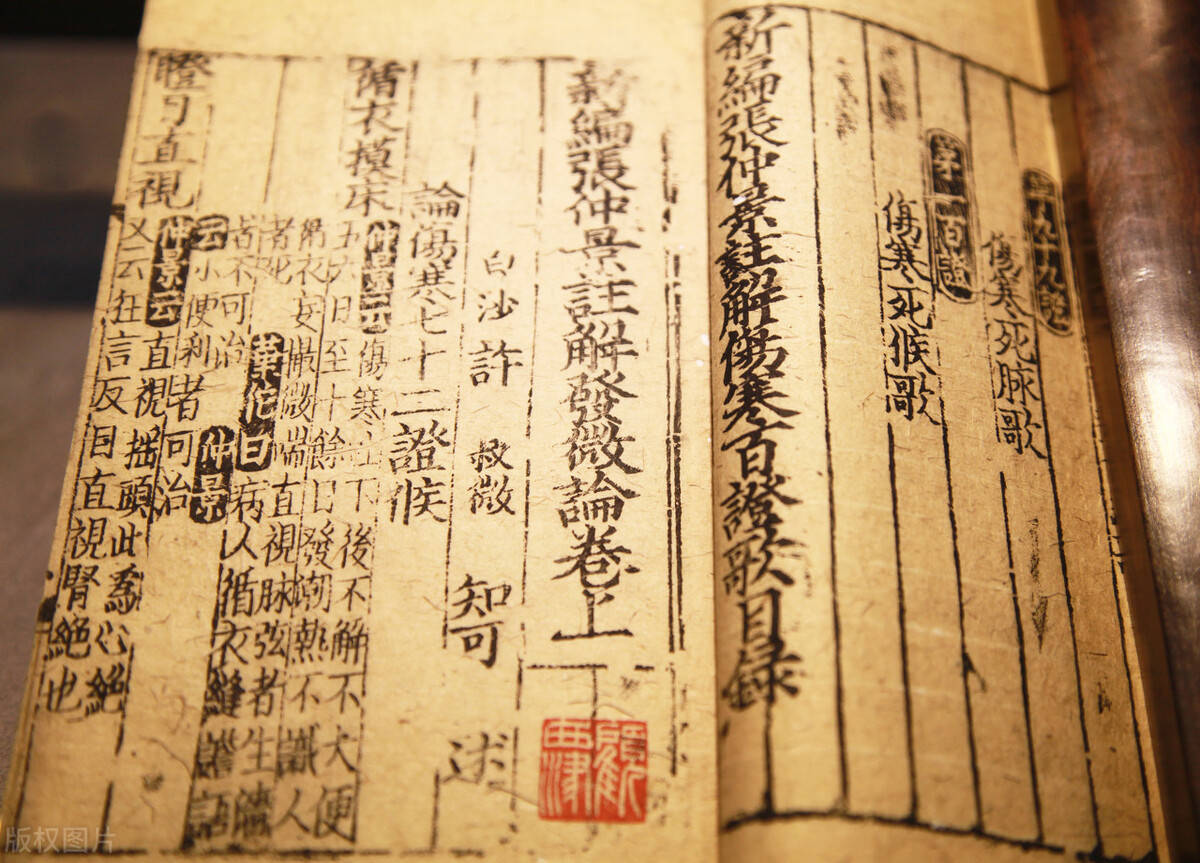 第九十九證
傷寒死脉歌
第一百證
傷寒死候歌
新編張仲景註解傷寒百證歌目録
新編張仲景註解發微論卷上
白沙許 叔微 知可 述
論傷寒七十二證候
循衣摸床 仲景云傷寒吐下後不解不大便
五六日至十餘日發潮熱不識人
循衣妄撮微喘直視脉弦者生濇
者死 華佗曰病人循衣縫譫語
者不可治 仲景
云小便利者可治
瞪目直視 仲景云直視揺頭此爲心絶
又云狂言反目直視腎絶也
顧
西津
版权图片